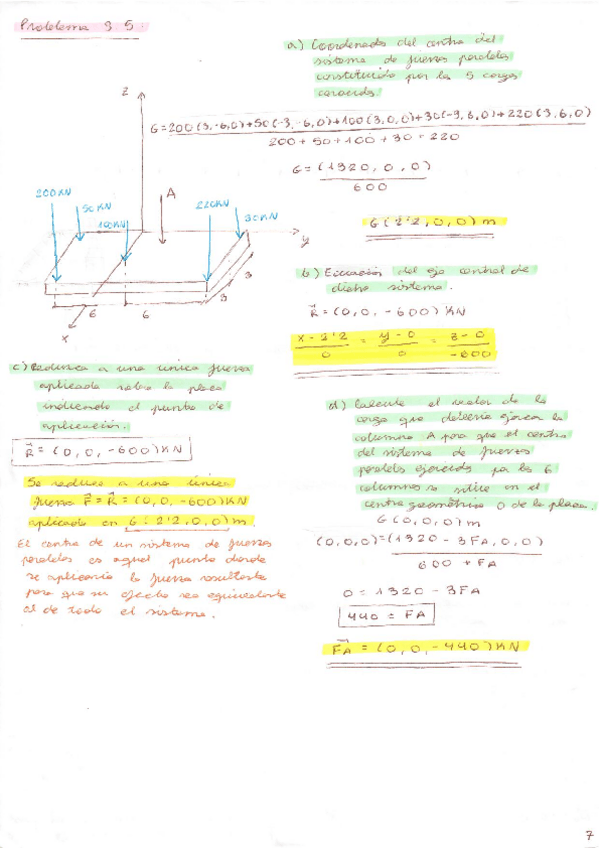 Problema 3 5.
a) Coordenadas del centro del
sistema de fuerzas paralelas
constituido por las 5 cargas
conocidas.
G = 200(3,-6,0)+50(-3,-6,0)+100(3,0,0)+30(-3,6,0)+220(3,6,0)
200 + 50 + 100 + 30 + 220
G = (1320, 0, 0)
600
G(2'2, 0, 0) m
z
200KN
50 KN
100KN
A
220KN
30KN
y
3
3
6
6
x
b) Ecuación del eje central de
dicho sistema.
R = (0, 0, -600) KN
x - 2'2 = y - 0 = z - 0
0 0 -600
c) Reduzca a una única fuerza
aplicada sobre la placa
indicando el punto de
aplicación.
R = (0, 0, -600) KN
Se reduce a una única
fuerza F = R = (0, 0, -600) KN
aplicada en G: (2'2, 0, 0) m.
El centro de un sistema de fuerzas
paralelas es aquel punto donde
se aplicaría la fuerza resultante
para que su efecto sea equivalente
al de todo el sistema.
d) Calcule el valor de la
carga que debería ejercer la
columna A para que el centro
del sistema de fuerzas
paralelas ejercidas por las 6
columnas se sitúe en el
centro geométrico O de la placa.
G(0,0,0) m
(0,0,0) = (1320 - 3FA, 0, 0)
600 + FA
0 = 1320 - 3FA
440 = FA
FA = (0, 0, -440) KN
7